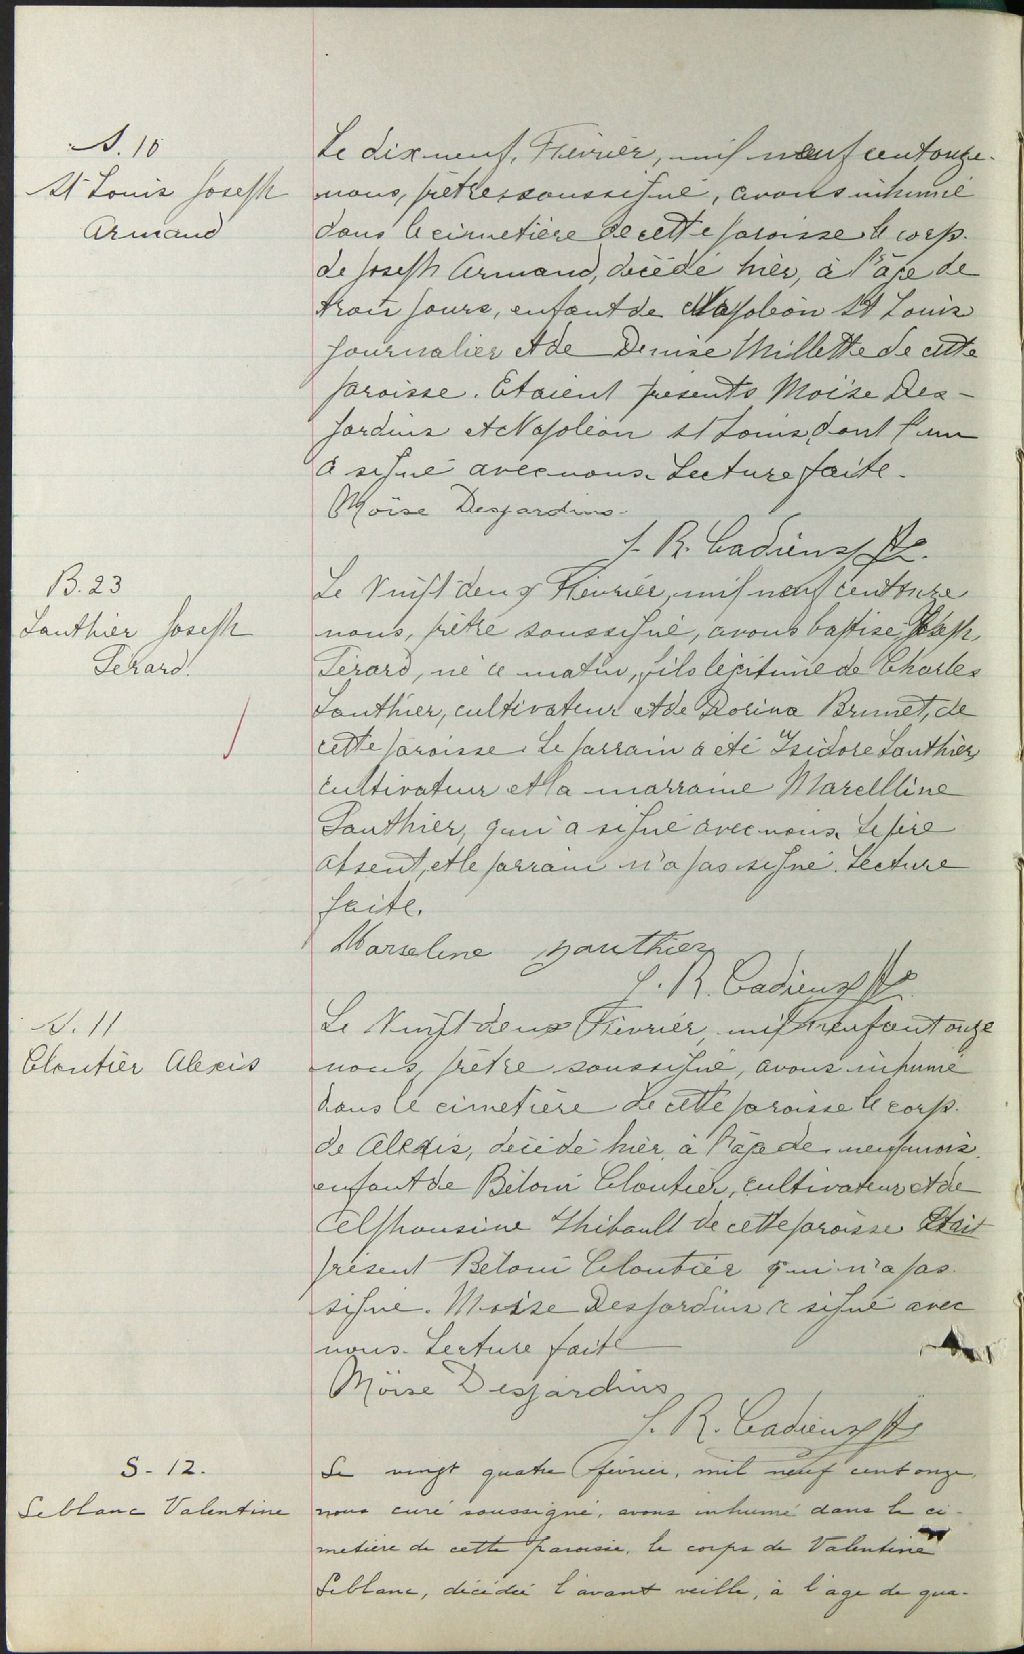 S. 10
St Louis Joseph
Armand
Le dix neuf, Février, mil neuf cent onze
nous, prêtre soussigné, avons inhumé
dans le cimetière de cette paroisse le corp.
de Joseph Armand, décédé hier, à l'âge de
trois jours, enfant de Napoléon St Louis
journalier et de Denise Millette de cette
paroisse. Etaient présents Moïse Des-
jardins et Napoléon St Louis, dont l'un
a signé avec nous. Lecture faite.
Moïse Desjardins
J. R. Cadieux Ptre.
B. 23
Gauthier Joseph
Gérard.
Le Vingt deux Février, mil neuf cent onze
nous, prêtre soussigné, avons baptisé Joseph,
Gérard, né ce matin, fils légitime de Charles
Gauthier, cultivateur et de Dorina Brunet, de
cette paroisse. Le parrain a été Isidore Gauthier,
cultivateur et la marraine Marcelline
Gauthier, qui a signé avec nous. Le père
absent, et le parrain n'a pas signé. Lecture
faite.
Marseline gauthier
J. R. Cadieux Ptre.
S. 11
Cloutier Alexis
Le Vingt deux Février, mil neuf cent onze
nous, prêtre soussigné, avons inhumé
dans le cimetière de cette paroisse le corp.
de Alexis, décédé hier, à l'âge de neuf mois.
enfant de Béloni Cloutier, cultivateur et de
Alphonsine Thibault de cette paroisse Etait
présent Béloni Cloutier qui n'a pas
signé. Moïse Desjardins a signé avec
nous. Lecture faite
Moïse Desjardins
J. R. Cadieux Ptre
S - 12.
Leblanc Valentine
Le vingt quatre février, mil neuf cent onze,
nous curé soussigné, avons inhumé dans le ci-
metière de cette paroisse, le corps de Valentine
Leblanc, décédée l'avant veille, à l'age de qua-